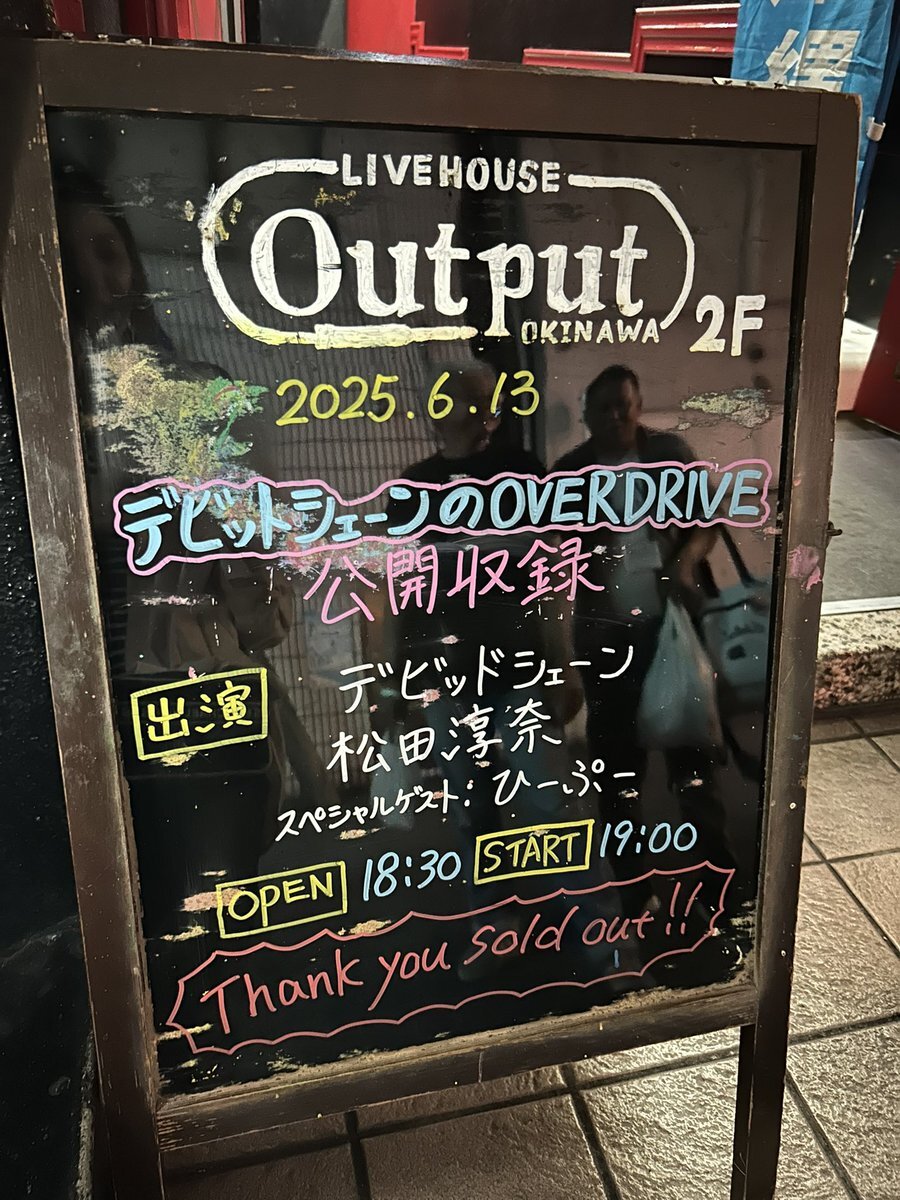 LIVEHOUSE
Output
OKINAWA 2F
2025.6.13
デビットシェーンのOVERDRIVE
公開収録
出演 デビッドシェーン
松田淳奈
スペシャルゲスト:ひーぷー
OPEN 18:30 START 19:00
Thank you sold out!!
縄